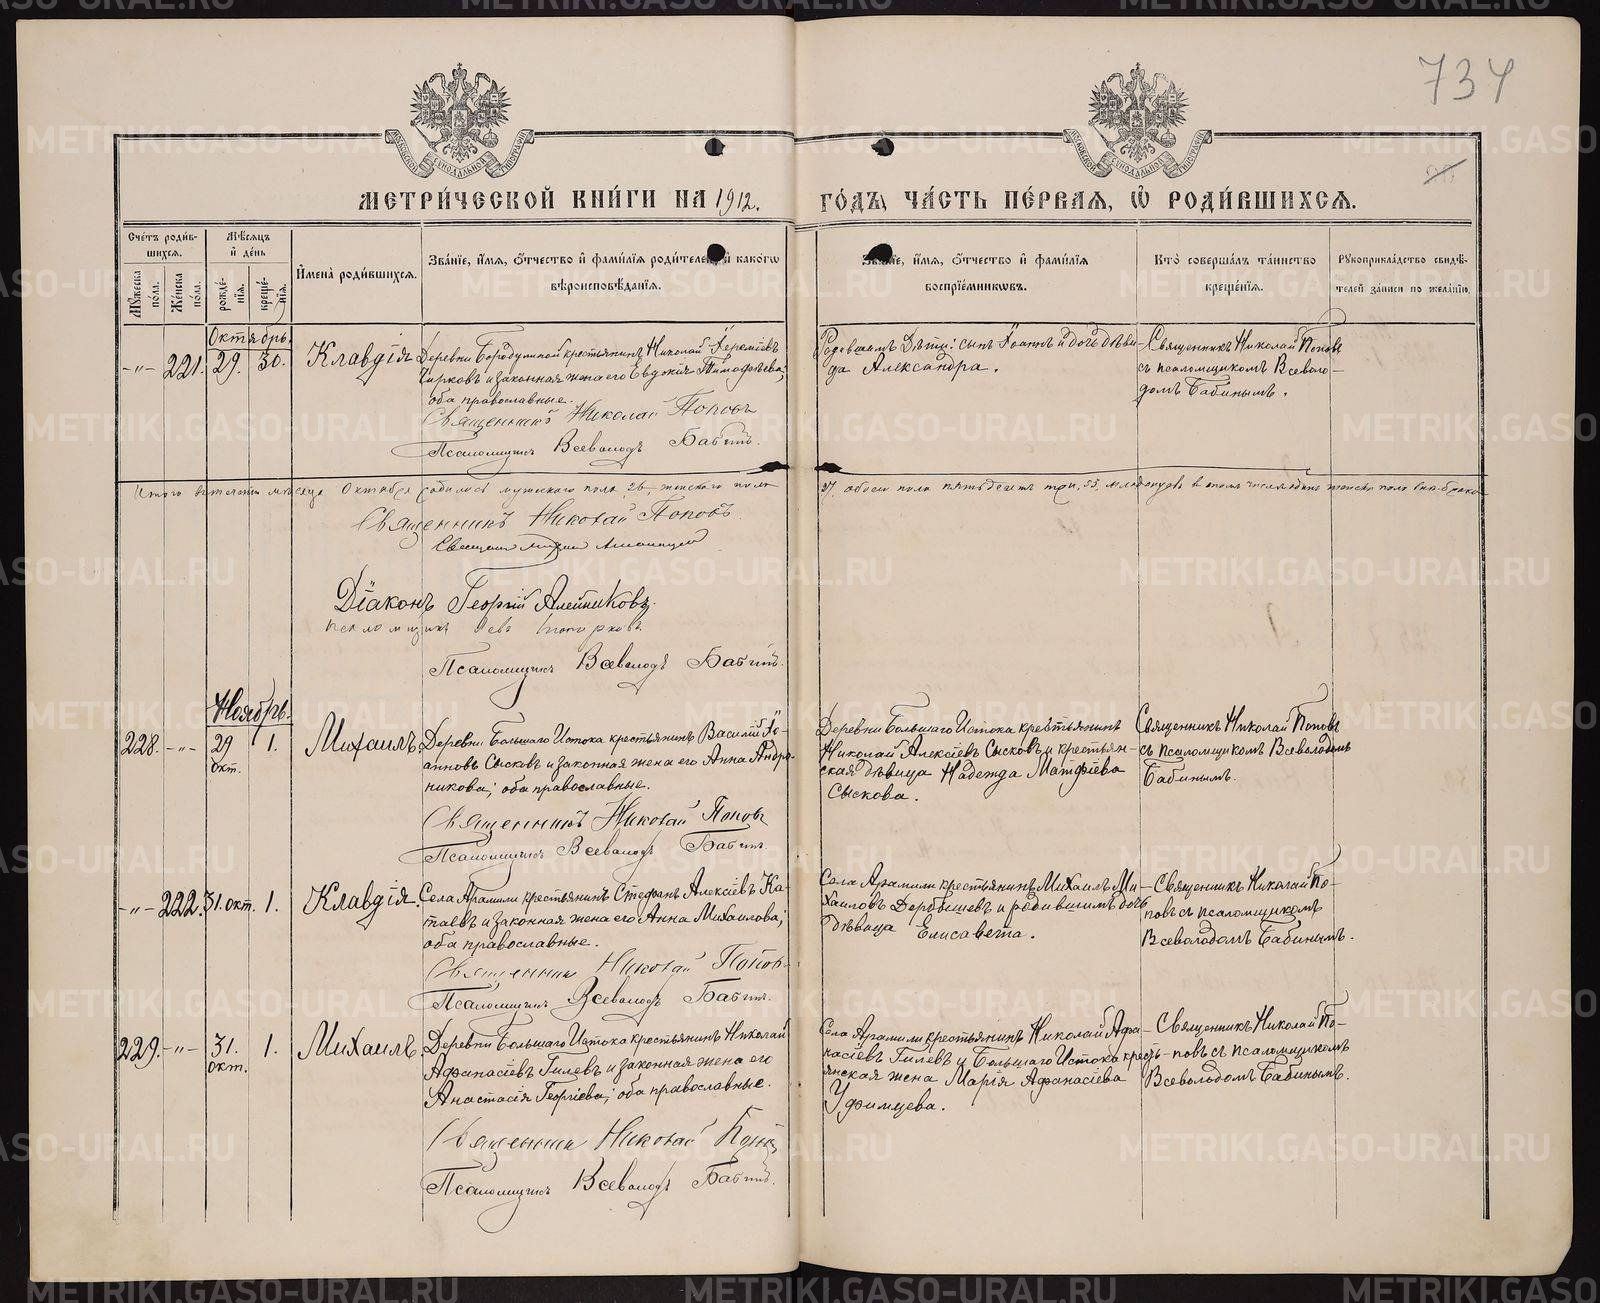 734
МЕТРИ́ЧЕСКОЙ КНИ́ГИ НА 1912. ГО́ДЪ, ЧА́СТЬ ПЕ́РВАЯ, Ѡ РОДИ́ВШИХСЯ.
Сче́тъ роди́в-
шихся.
Му́жеска по́ла.
Же́нска по́ла.
Мѣ́сяцъ
и де́нь
рожде́-
нія.
креще́-
нія.
Имена̀ роди́вшихся.
Зва́ніе, и́мя, о́тчество и фами́лія роди́телей, и како́гѡ
вѣроисповѣ́данія.
Зва́ніе, и́мя, о́тчество и фами́лія
воспріе́мниковъ.
Кто̀ соверша́лъ та́инство
креще́нія.
Рукоприкла́дство свидѣ́-
телей за́писи по жела́нію.
Октябрь.
-"- 221. 29. 30. Клавдія
Деревни Бородулиной крестьянинъ Николай Іереміевъ
Чирковъ и законная жена его Евдокія Тимофѣева;
оба православные.
Священникъ Николай Поповъ
Псаломщикъ Всеволодъ Бабинъ.
Родившемъ Дѣти: сынъ Іоаннъ и дочь дѣви-
ца Александра.
Священникъ Николай Поповъ
съ псаломщикомъ Всеволо-
домъ Бабинымъ.
Итого въ теченіи мѣсяца Октября родилось мужескаго пола 26, женскаго пола 27, обоего пола пятьдесятъ три, 53, младенцевъ въ томъ числѣ
Священникъ Николай Поповъ.
Діаконъ Георгій Алейниковъ.
Псаломщикъ
Псаломщикъ Всеволодъ Бабинъ.
Ноябрь.
228. -"- 29 окт. 1. Михаилъ
Деревни Большаго Истока крестьянинъ Василій Іо-
анновъ Сысковъ и законная жена его Анна Андро-
никова; оба православные.
Священникъ Николай Поповъ
Псаломщикъ Всеволодъ Бабинъ.
Деревни Большаго Истока крестьянинъ
Николай Алексіевъ Сысковъ и крестьян-
ская дѣвица Надежда Матфіева
Сыскова.
Священникъ Николай Поповъ
съ псаломщикомъ Всеволодомъ
Бабинымъ.
-"- 222. 31. окт. 1. Клавдія.
Села Арамили крестьянинъ Стефанъ Алексіевъ Ка-
таевъ и законная жена его Анна Михаилова;
оба православные.
Священникъ Николай Поповъ
Псаломщикъ Всеволодъ Бабинъ.
Села Арамили крестьянинъ Михаилъ Ми-
хаиловъ Дербышевъ и родившимъ дочь
дѣвица Елисавета.
Священникъ Николай По-
повъ съ псаломщикомъ
Всеволодомъ Бабинымъ.
229. -"- 31. окт. 1. Михаилъ
Деревни Большаго Истока крестьянинъ Николай
Афанасіевъ Гилевъ и законная жена его
Анастасія Георгіева; оба православные.
Священникъ Николай Поповъ
Псаломщикъ Всеволодъ Бабинъ.
Села Арамили крестьянинъ Николай Афа-
насіевъ Гилевъ и Большаго Истока кресть-
янская жена Марія Афанасіева
Уфимцева.
Священникъ Николай По-
повъ съ псаломщикомъ
Всеволодомъ Бабинымъ.
METRIKI.GASO-URAL.RU